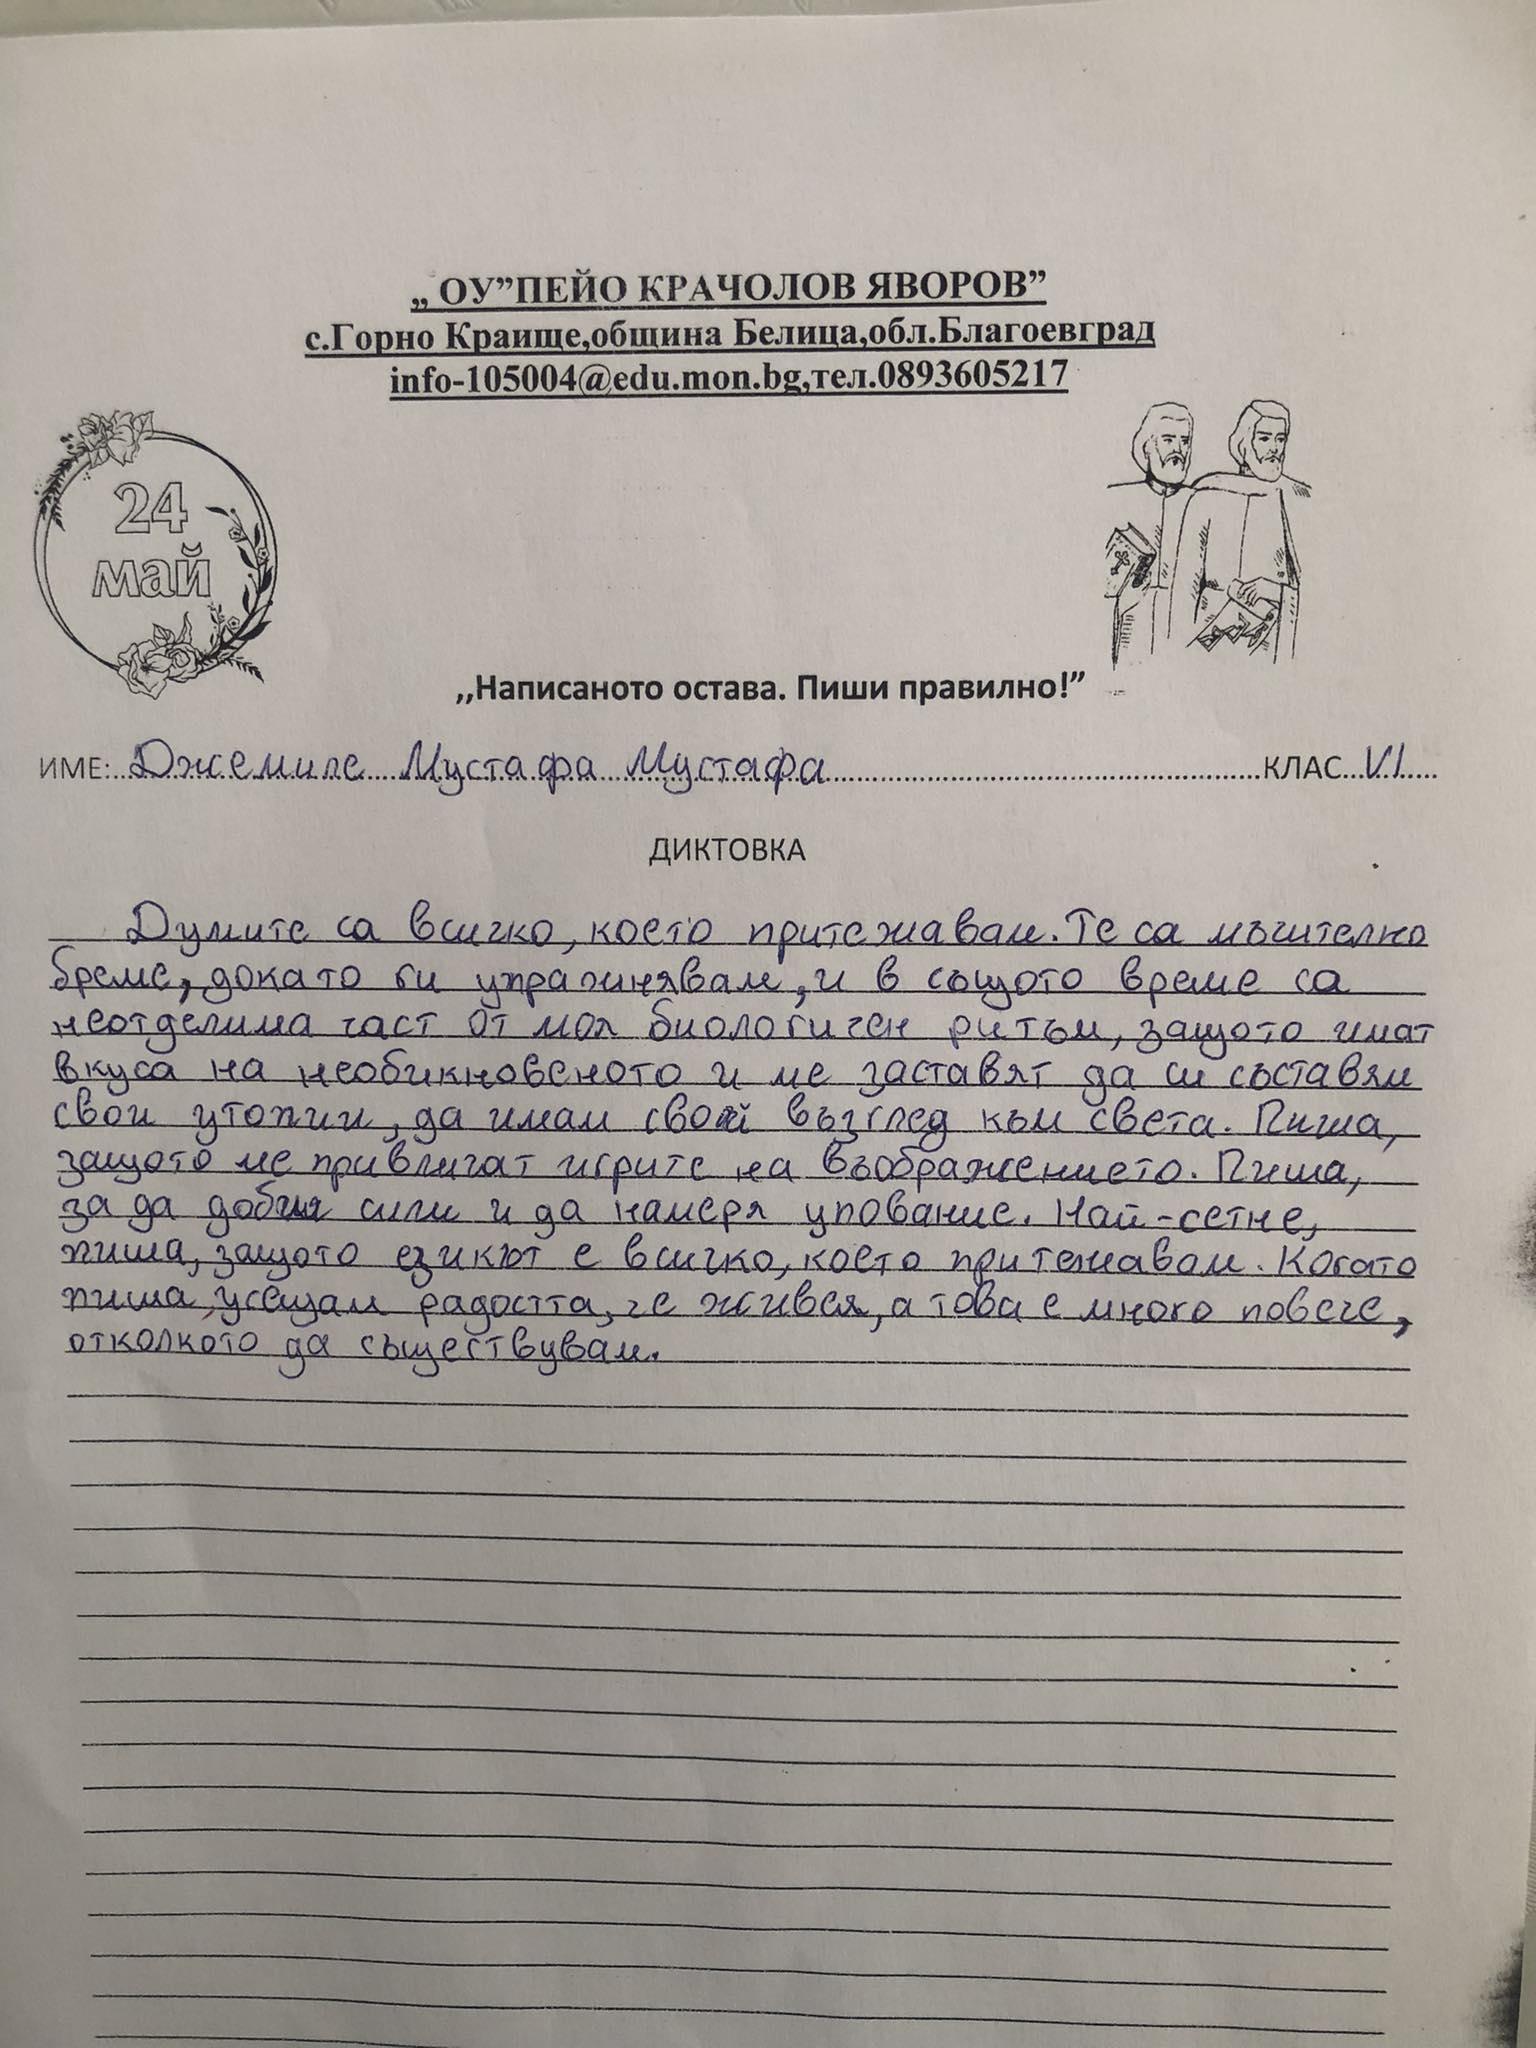 „ ОУ”ПЕЙО КРАЧОЛОВ ЯВОРОВ”
с.Горно Краище,община Белица,обл.Благоевград
info-105004@edu.mon.bg,тел.0893605217
24
май
,,Написаното остава. Пиши правилно!”
ИМЕ: Джемиле Мустафа Мустафа КЛАС VI
ДИКТОВКА
Думите са всичко, което притежавам. Те са мъчително
бреме, докато ги упражнявам, и в същото време са
неотделима част от моя биологичен ритъм, защото имат
вкуса на необикновеното и ме заставят да си съставям
свои утопии, да имам свой възглед към света. Пиша,
защото ме привличат игрите на въображението. Пиша,
за да добия сили и да намеря упование. Най-сетне,
пиша, защото езикът е всичко, което притежавам. Когато
пиша, усещам радостта, че живея, а това е много повече,
отколкото да съществувам.